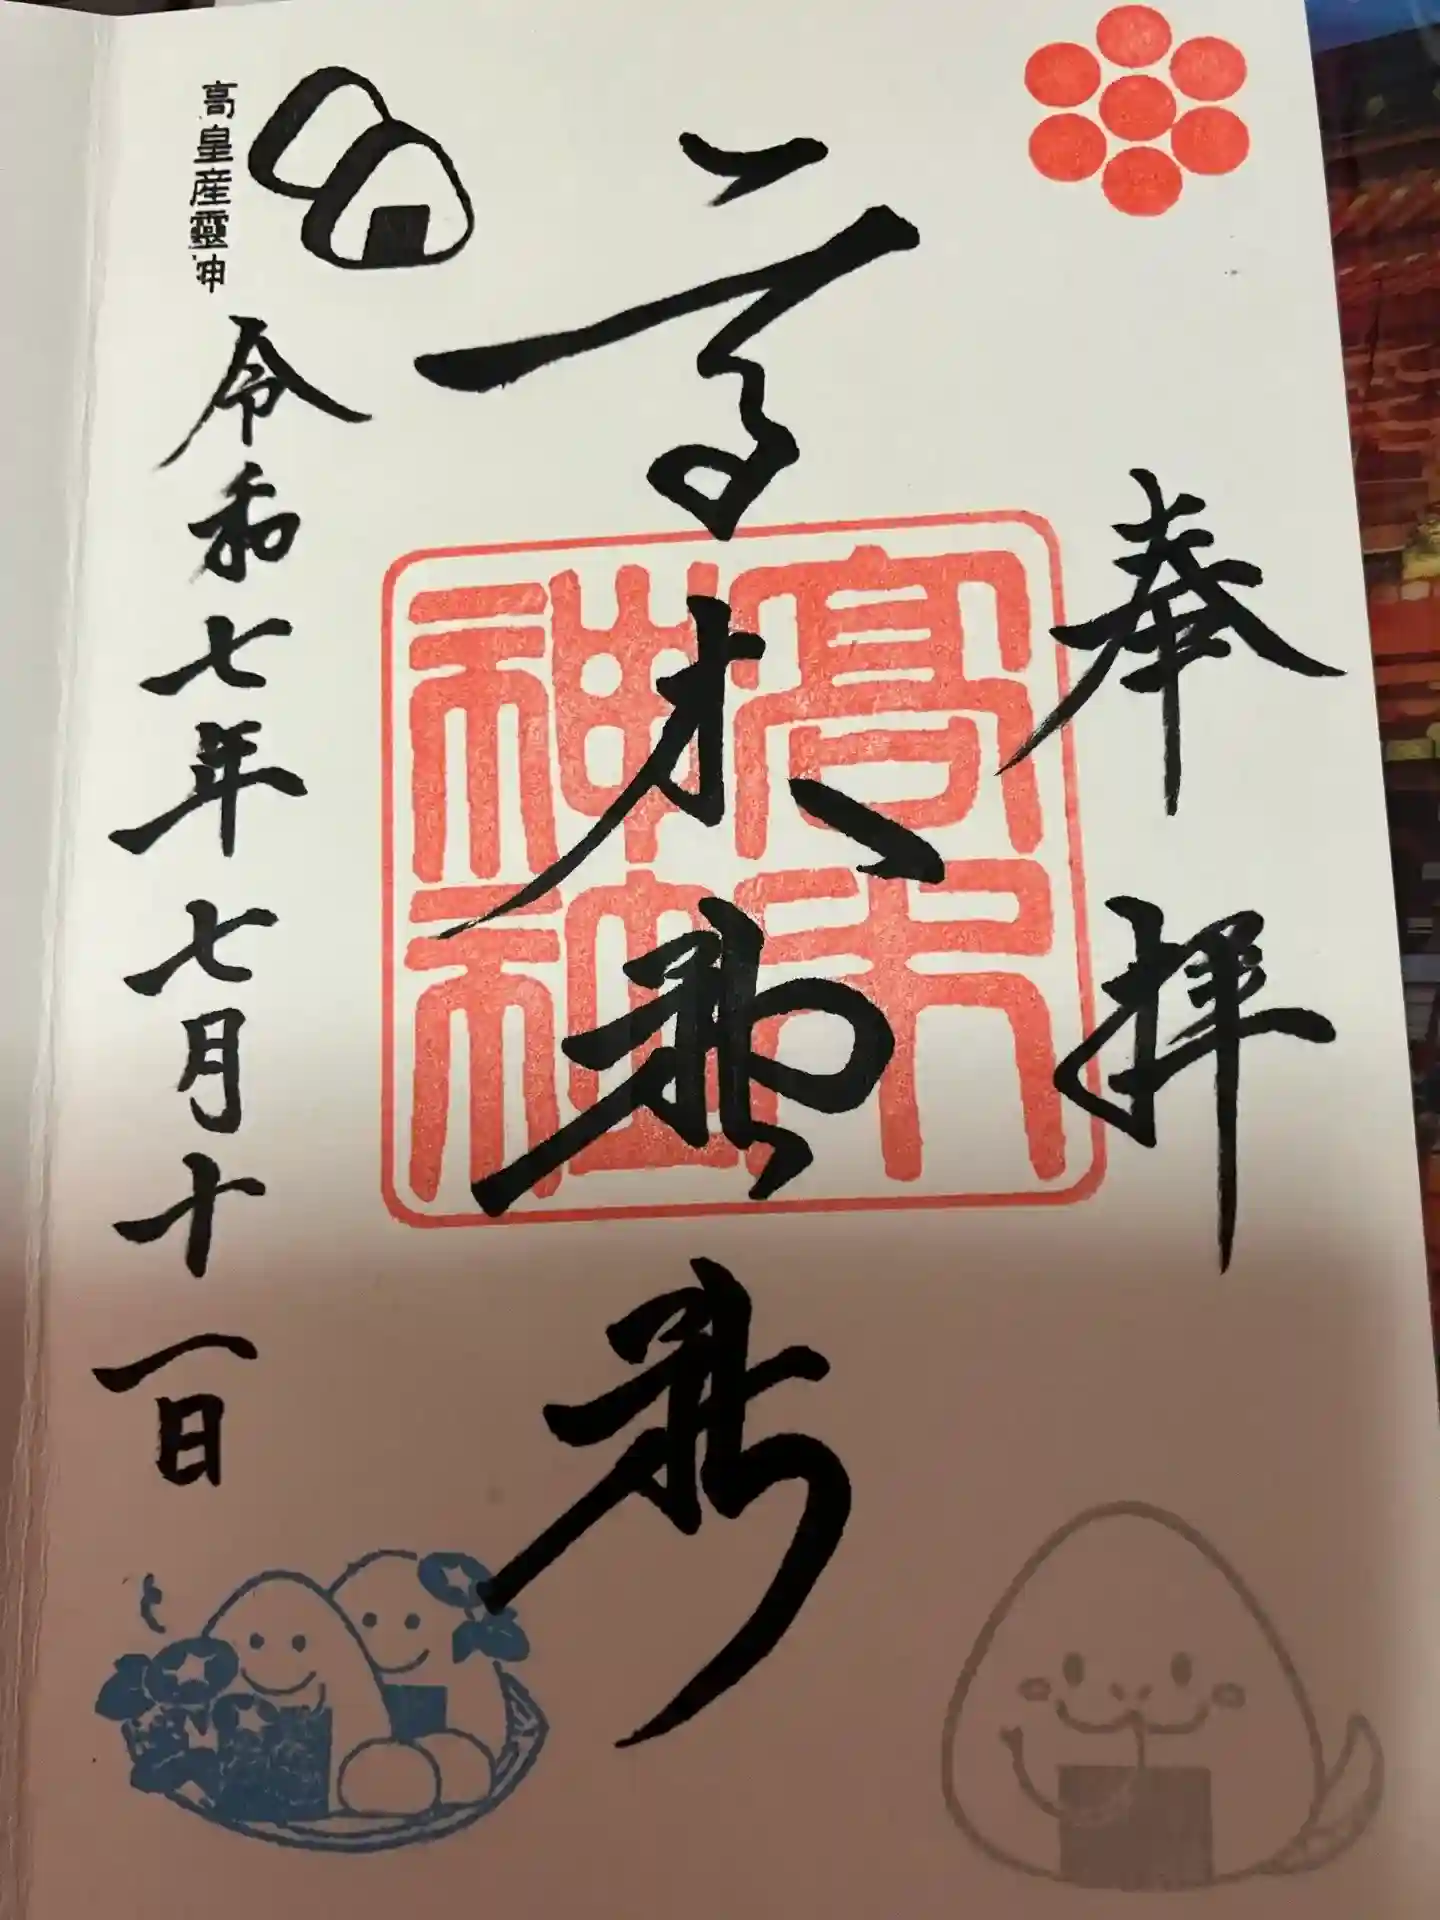 奉拝
高木神社
高木神社
高皇産靈神
令和七年七月十一日